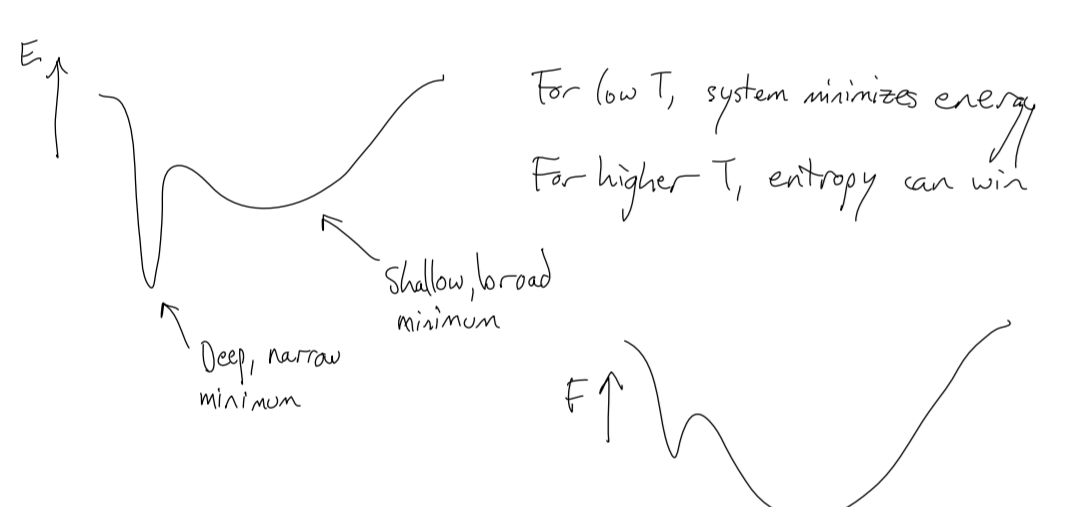 E
For low T, system minimizes energy
For higher T, entropy can win
Shallow, broad
minimum
Deep, narrow
minimum
F